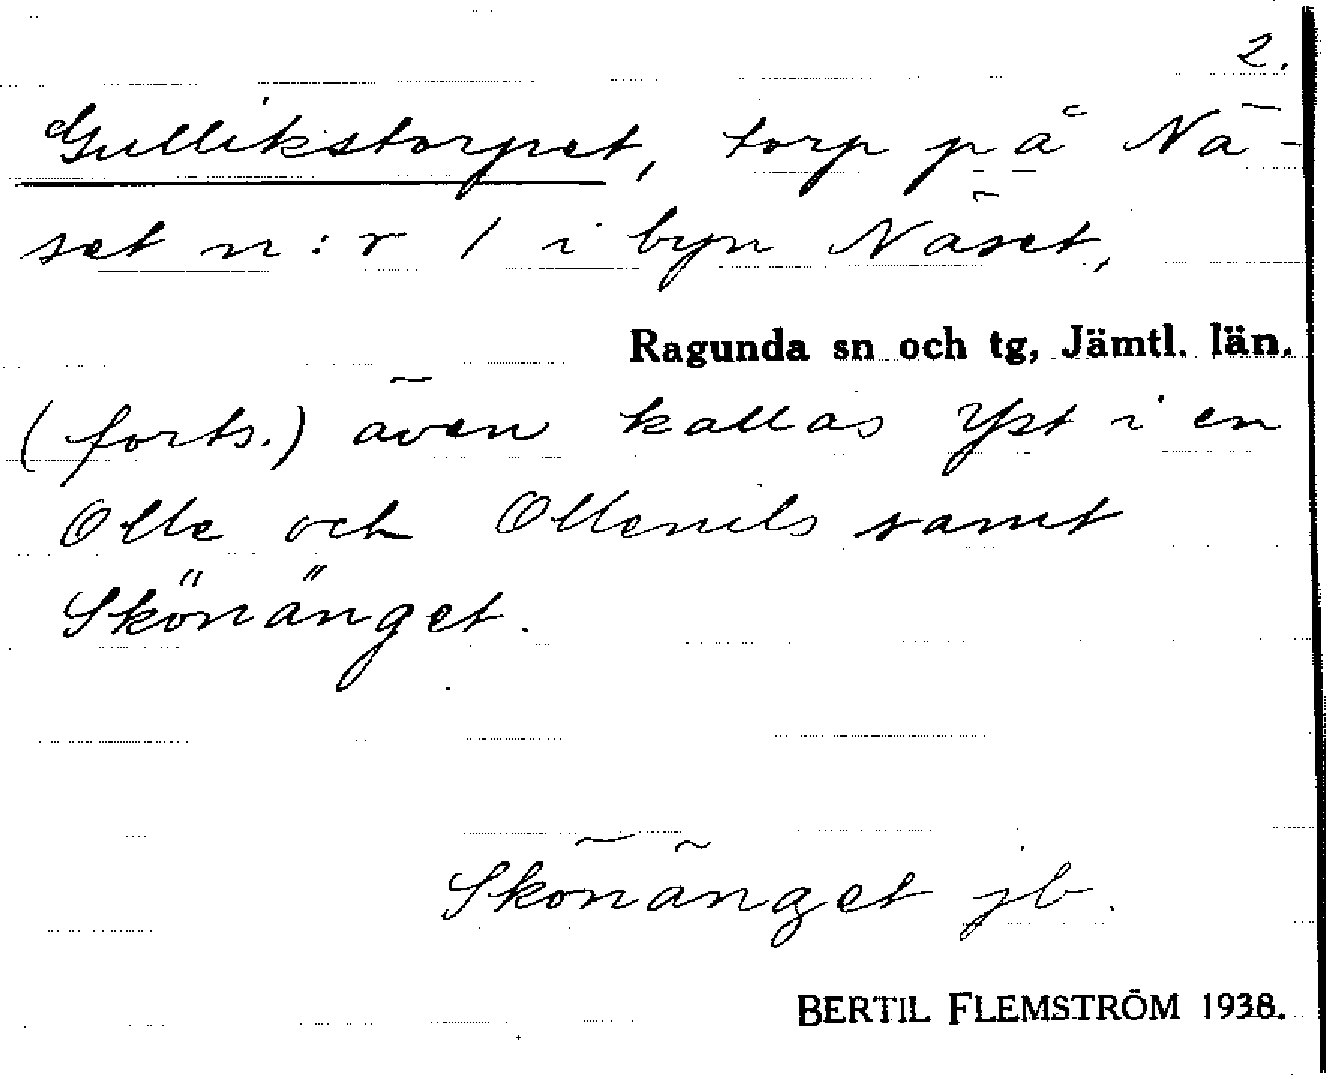 2.
Gullikstorpet, torp på Nä-
set n:r 1 i byn Näset,
Ragunda sn och tg, Jämtl. län.
(forts.) även kallas Yst i en
Olle och Ollenils samt
Skönänget.
Skönänget jb.
BERTIL FLEMSTRÖM 1938.